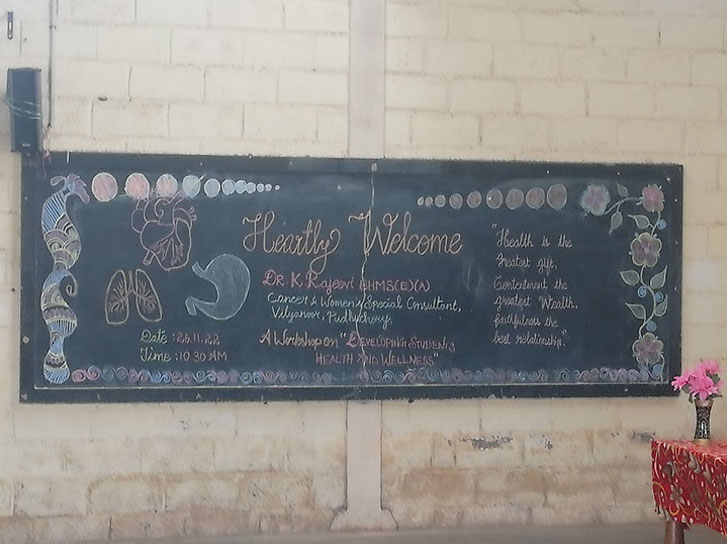 Heartly Welcome
Dr. K. Rajeev BHMS(E)(A)
Cancer & Women's Special Consultant,
Villyanor, Puducherry.
A Workshop on "DEVELOPING STUDENTS
HEALTH AND WELLNESS"
Date : 26.11.22
Time : 10.30 AM
"Health is the
Greatest gift,
Contentment the
greatest Wealth,
faithfulness the
best relationship."